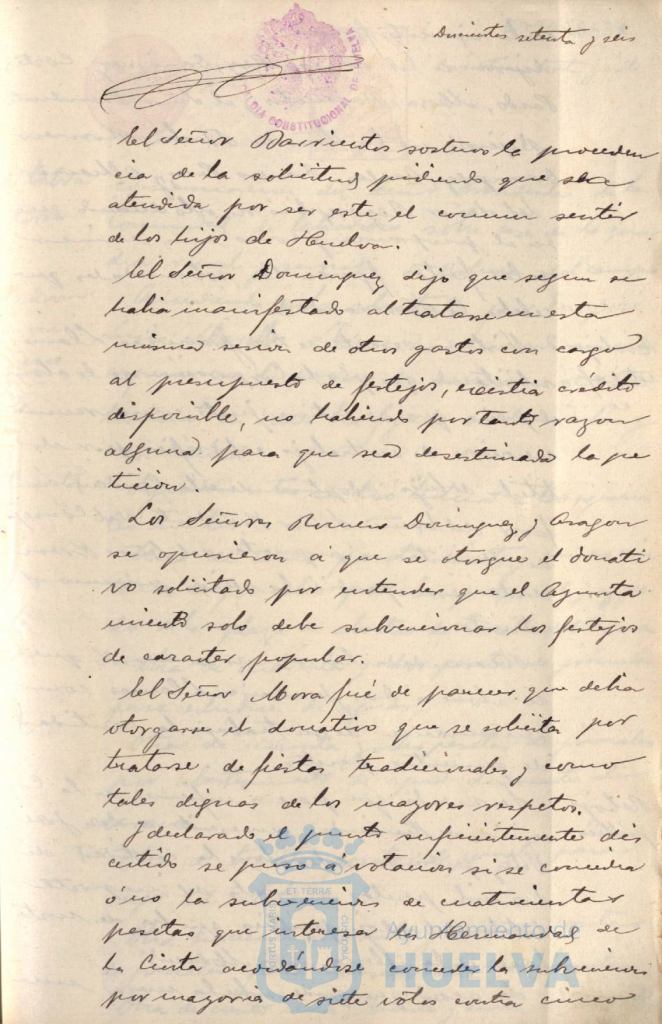 Doscientos setenta y seis
ALCALDIA CONSTITUCIONAL DE HUELVA
El Señor Barrientos sostuvo la proceden
cia de la solicitud pidiendo que sea
atendida por ser este el comun sentir
de los hijos de Huelva.
El Señor Dominguez dijo que segun se
habia manifestado al tratarse en esta
misma sesion de otros gastos con cargo
al presupuesto de festejos, existia crédito
disponible, no habiendo por tanto razon
alguna para que sea desestimada la pe
ticion.
Los Señores Romero Dominguez y Aragon
se opusieron á que se otorgue el donati
vo solicitado por entender que el Ayunta
miento solo debe subvencionar los festejos
de caracter popular.
El Señor Mora fué de parecer que debia
otorgarse el donativo que se solicita por
tratarse de fiestas tradicionales y como
tales dignas de los mayores respetos.
Y declarado el punto suficientemente dis
cutido se puso á votacion si se concedia
ó no la subvencion de cuatrocientas
pesetas que interesa la Hermandad de
la Cinta acordándose conceder la subvencion
por mayoria de siete votos contra cinco
Ayuntamiento de
HUELVA